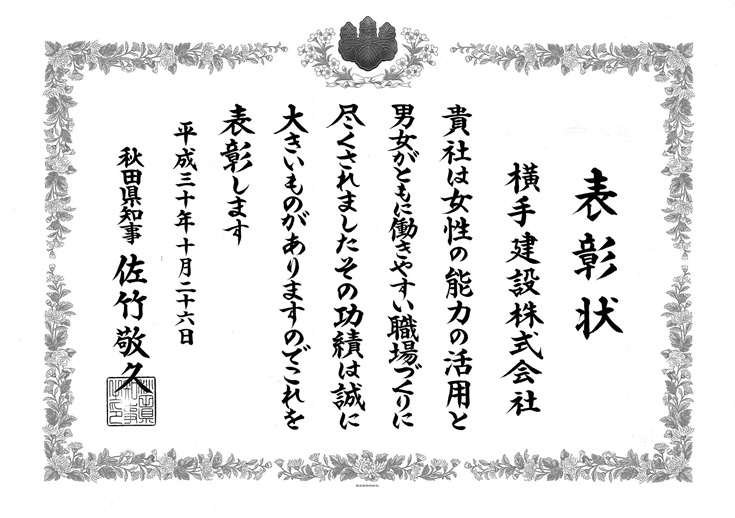 表彰状
横手建設株式会社
貴社は女性の能力の活用と
男女がともに働きやすい職場づくりに
尽くされましたその功績は誠に
大きいものがありますのでこれを
表彰します
平成三十年十月二十六日
秋田県知事 佐竹敬久